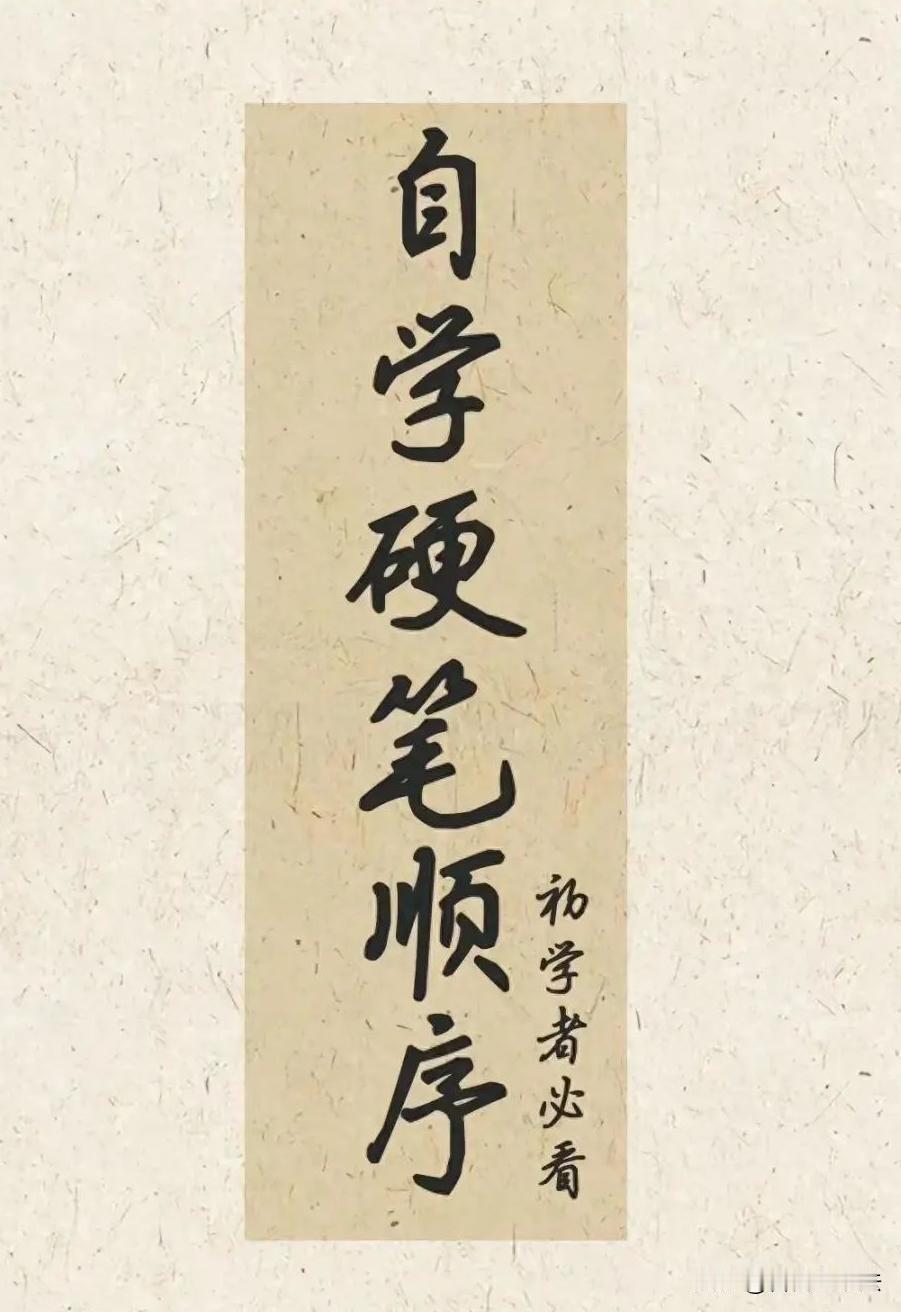 自学硬笔顺序
初学者必看